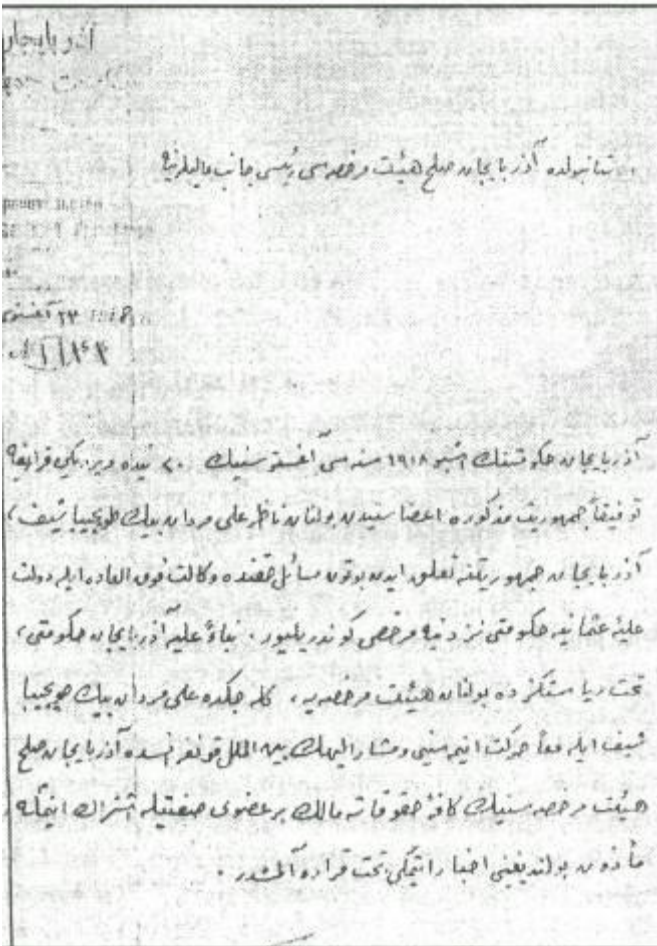 آذربایجان
استانبولده آذربایجان صلح هیئت مرخصه سی رئیسی جانب عالیلرینه
1918 ٢٣ آغستوس
آذربایجان حکومتنک اشبو ١٩١٨ سنه سی آغستوسنیک ٢٠ نیده ویردیکی قرارینه
توفیقاً جمهوریت مذکوره اعضا سیندن بولنان ناظر علی مردان بیك طوپچیباشیف،
آذربایجان جمهوریتنه تعلق ایدن بوتون مسائل حقنده وکالت فوق العاده ایله دولت
علیه عثمانیه حکومتی نزدنیه مرخصی کوندریلیور. بناءً علیه آذربایجان حکومتی،
تحت ریاستکزده بولنان هیئت مرخصه یه، کله جکده علی مردان بیك طوپچیبا
شیف ایله معاً حرکت ایتمه سنی ومشارالیهك بین الملل قونفرانسده آذربایجان صلح
هیئت مرخصه سنیك کافه حقوقاته مالك بر عضوی صفتیله اشتراك ایتمکه
مأذون بولندیغینی اخبار ایتمکی تحت قراره آلمشدر.